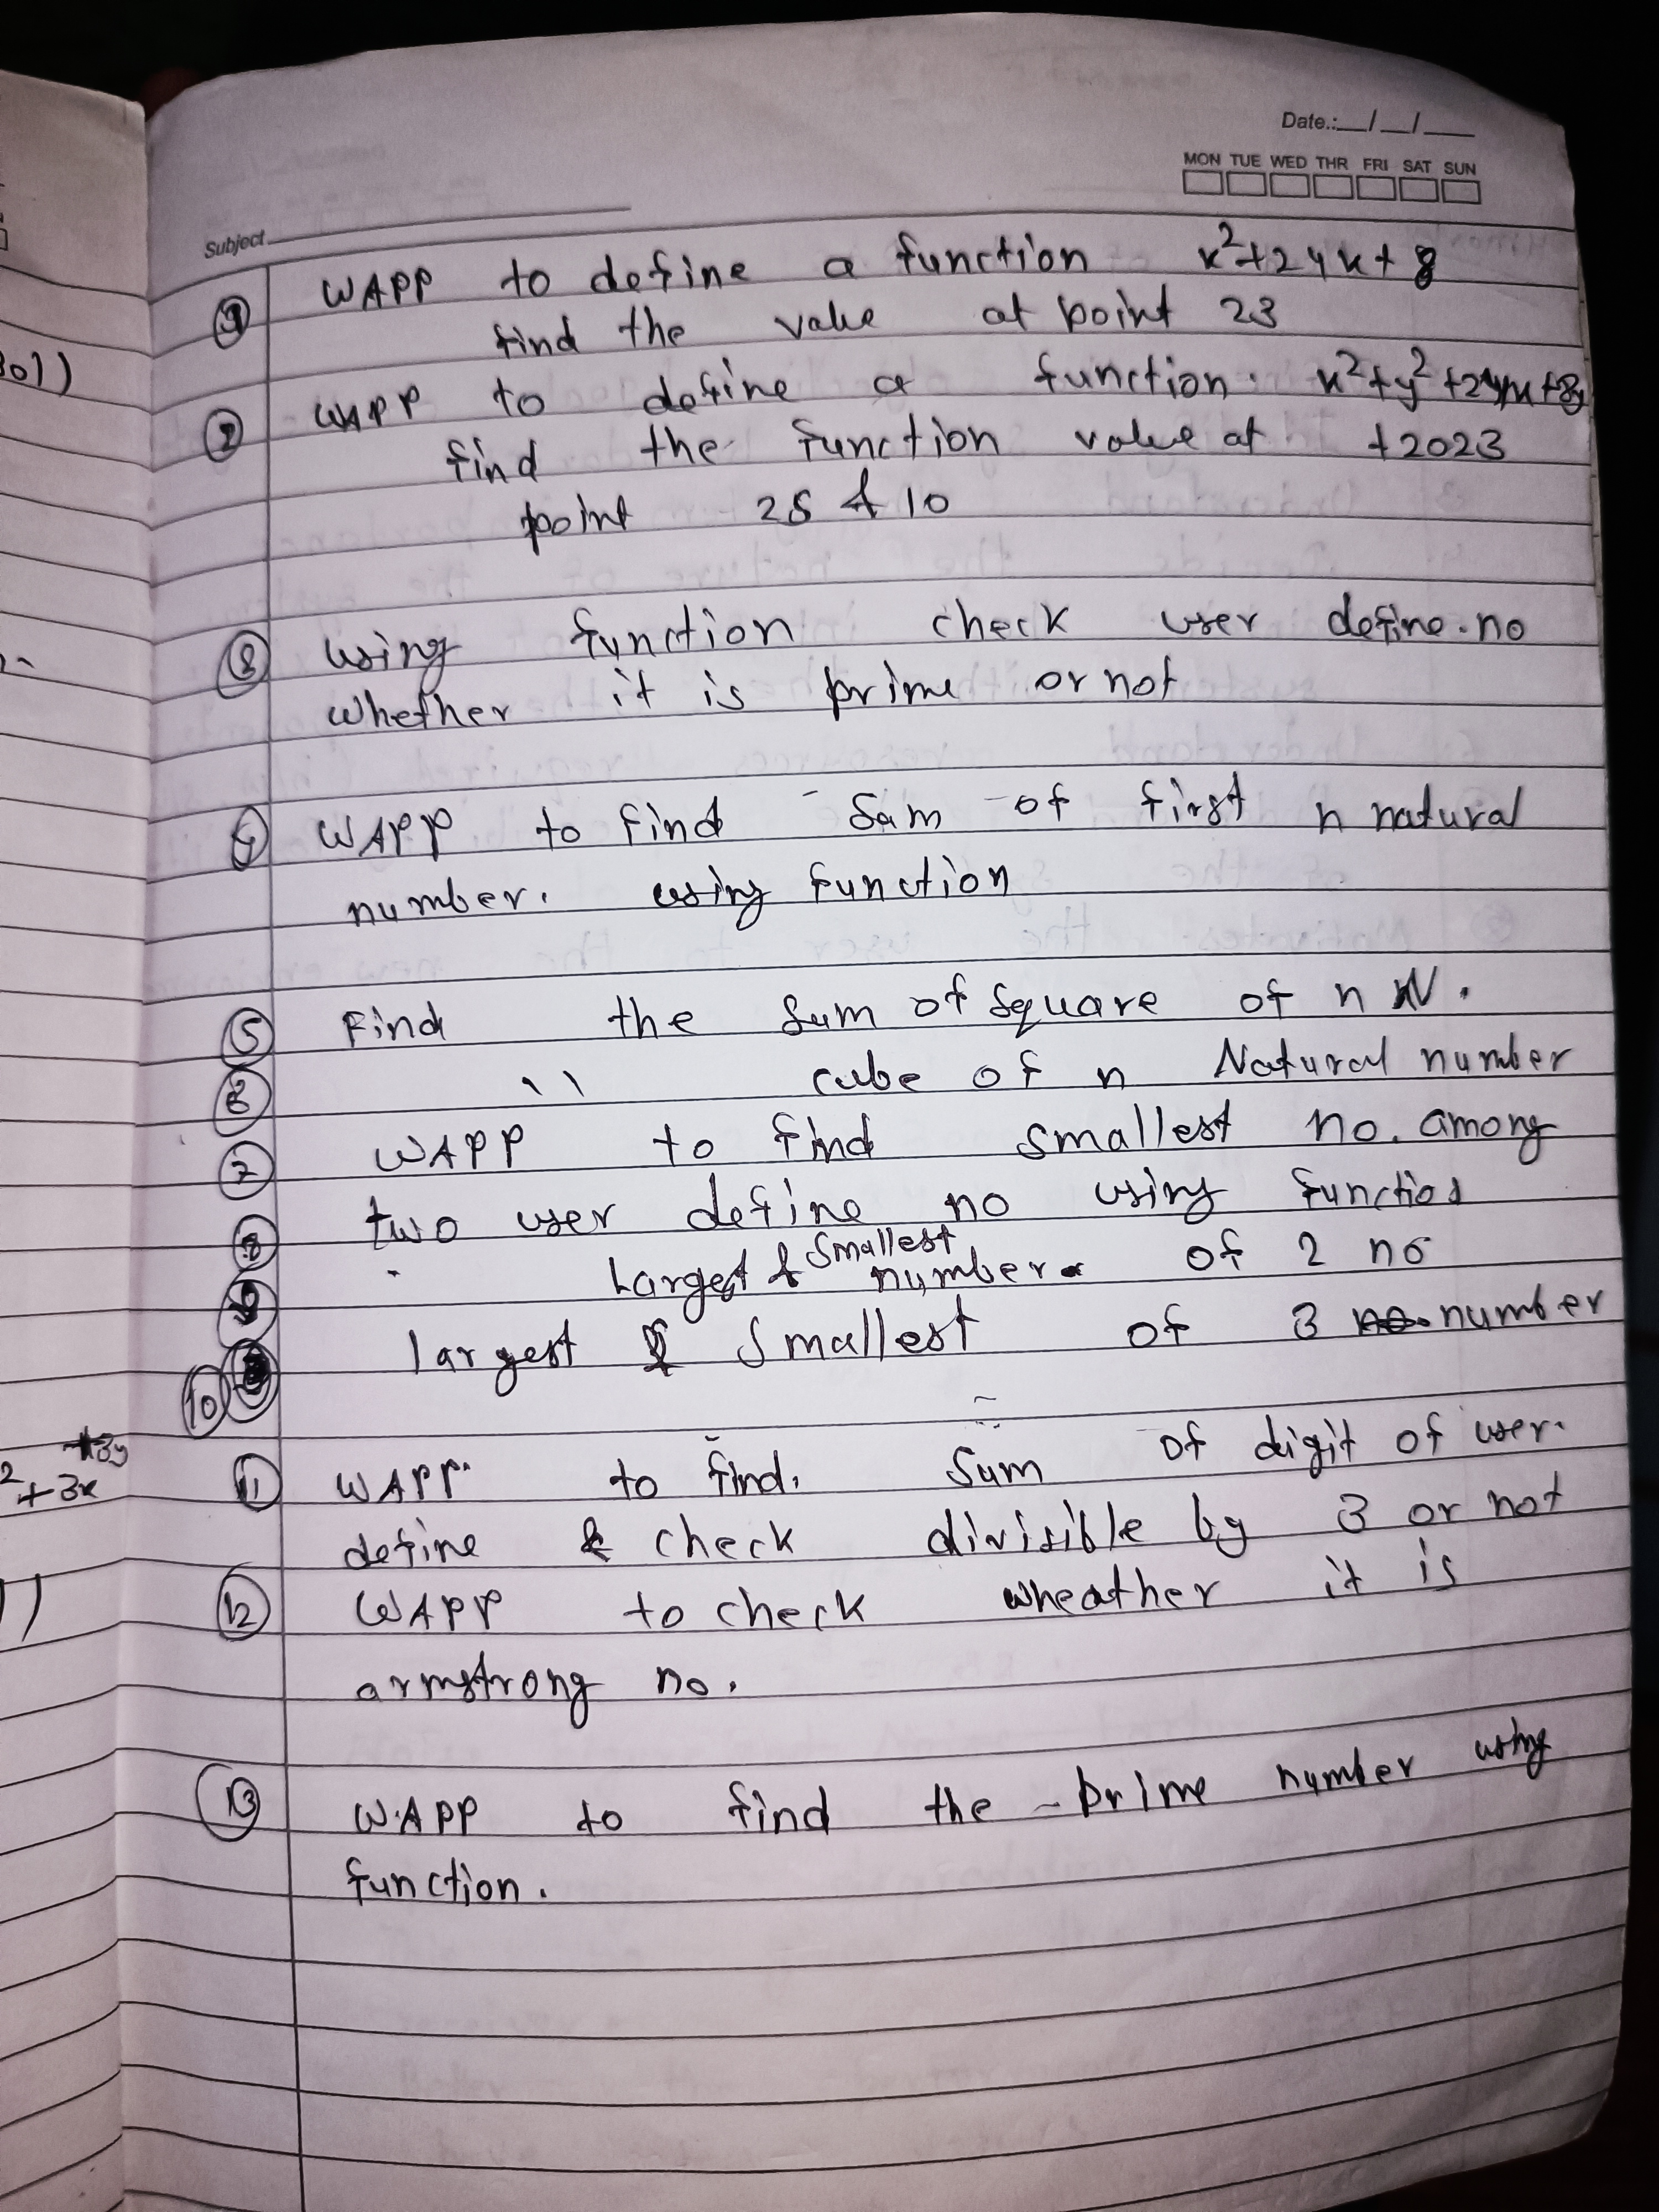 Date.:__/__/__
MON TUE WED THR FRI SAT SUN
Subject
① WAPP to define a function x²+24x+8
find the value at point 23
② WAPP to define a function. x²+y²
find the function value at +2023
point 25 & 10
③ using function check user define.no
whether it is prime or not
④ WAPP to find Sum of first n natural
number. using function
⑤ Find the Sum of Square of n N.
⑥ '' cube of n Natural number
⑦ WAPP to find smallest no. among
two user define no using function
⑧ Largest & Smallest number of 2 no
largest & Smallest of 3 number
⑩
⑪ WAPP to find. Sum of digit of user.
define & check divisible by 3 or not
⑫ WAPP to check wheather it is
armstrong no.
⑬ WAPP to find the prime number using
function.
301)
+3y
2+3x